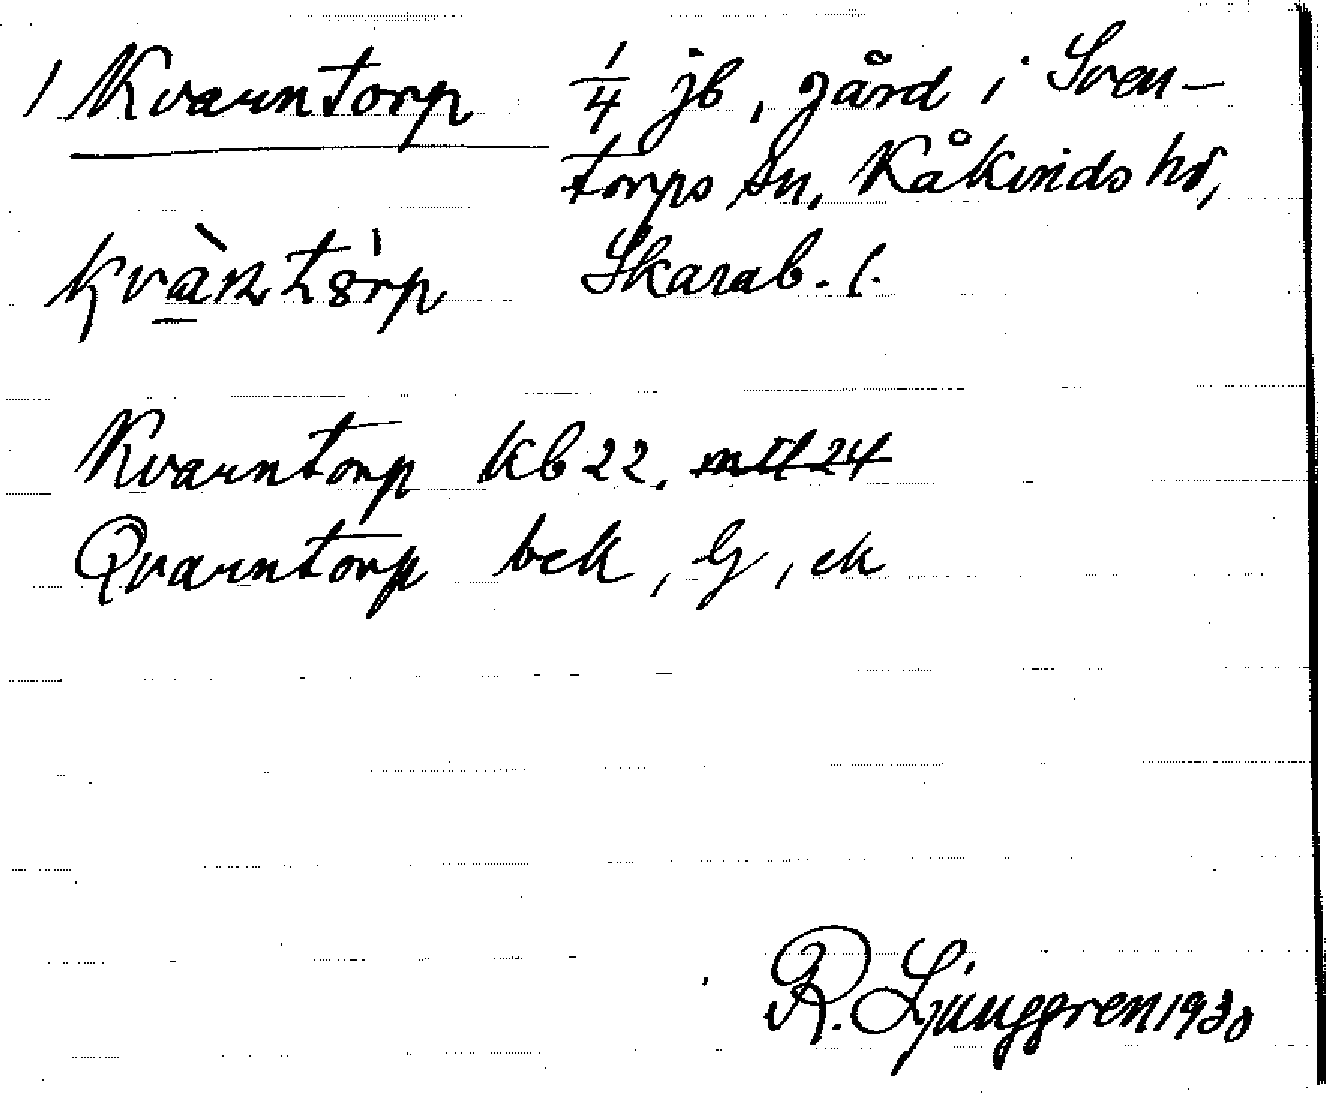 1 Kvarntorp 1/4 jb, gård i Sven-
torps sn, Kåkinds hd,
Kvàntorp Skarab. l.
Kvarntorp kb 22. mtl 24
Qvarntorp bck, G, ek
R. Ljunggren 1930